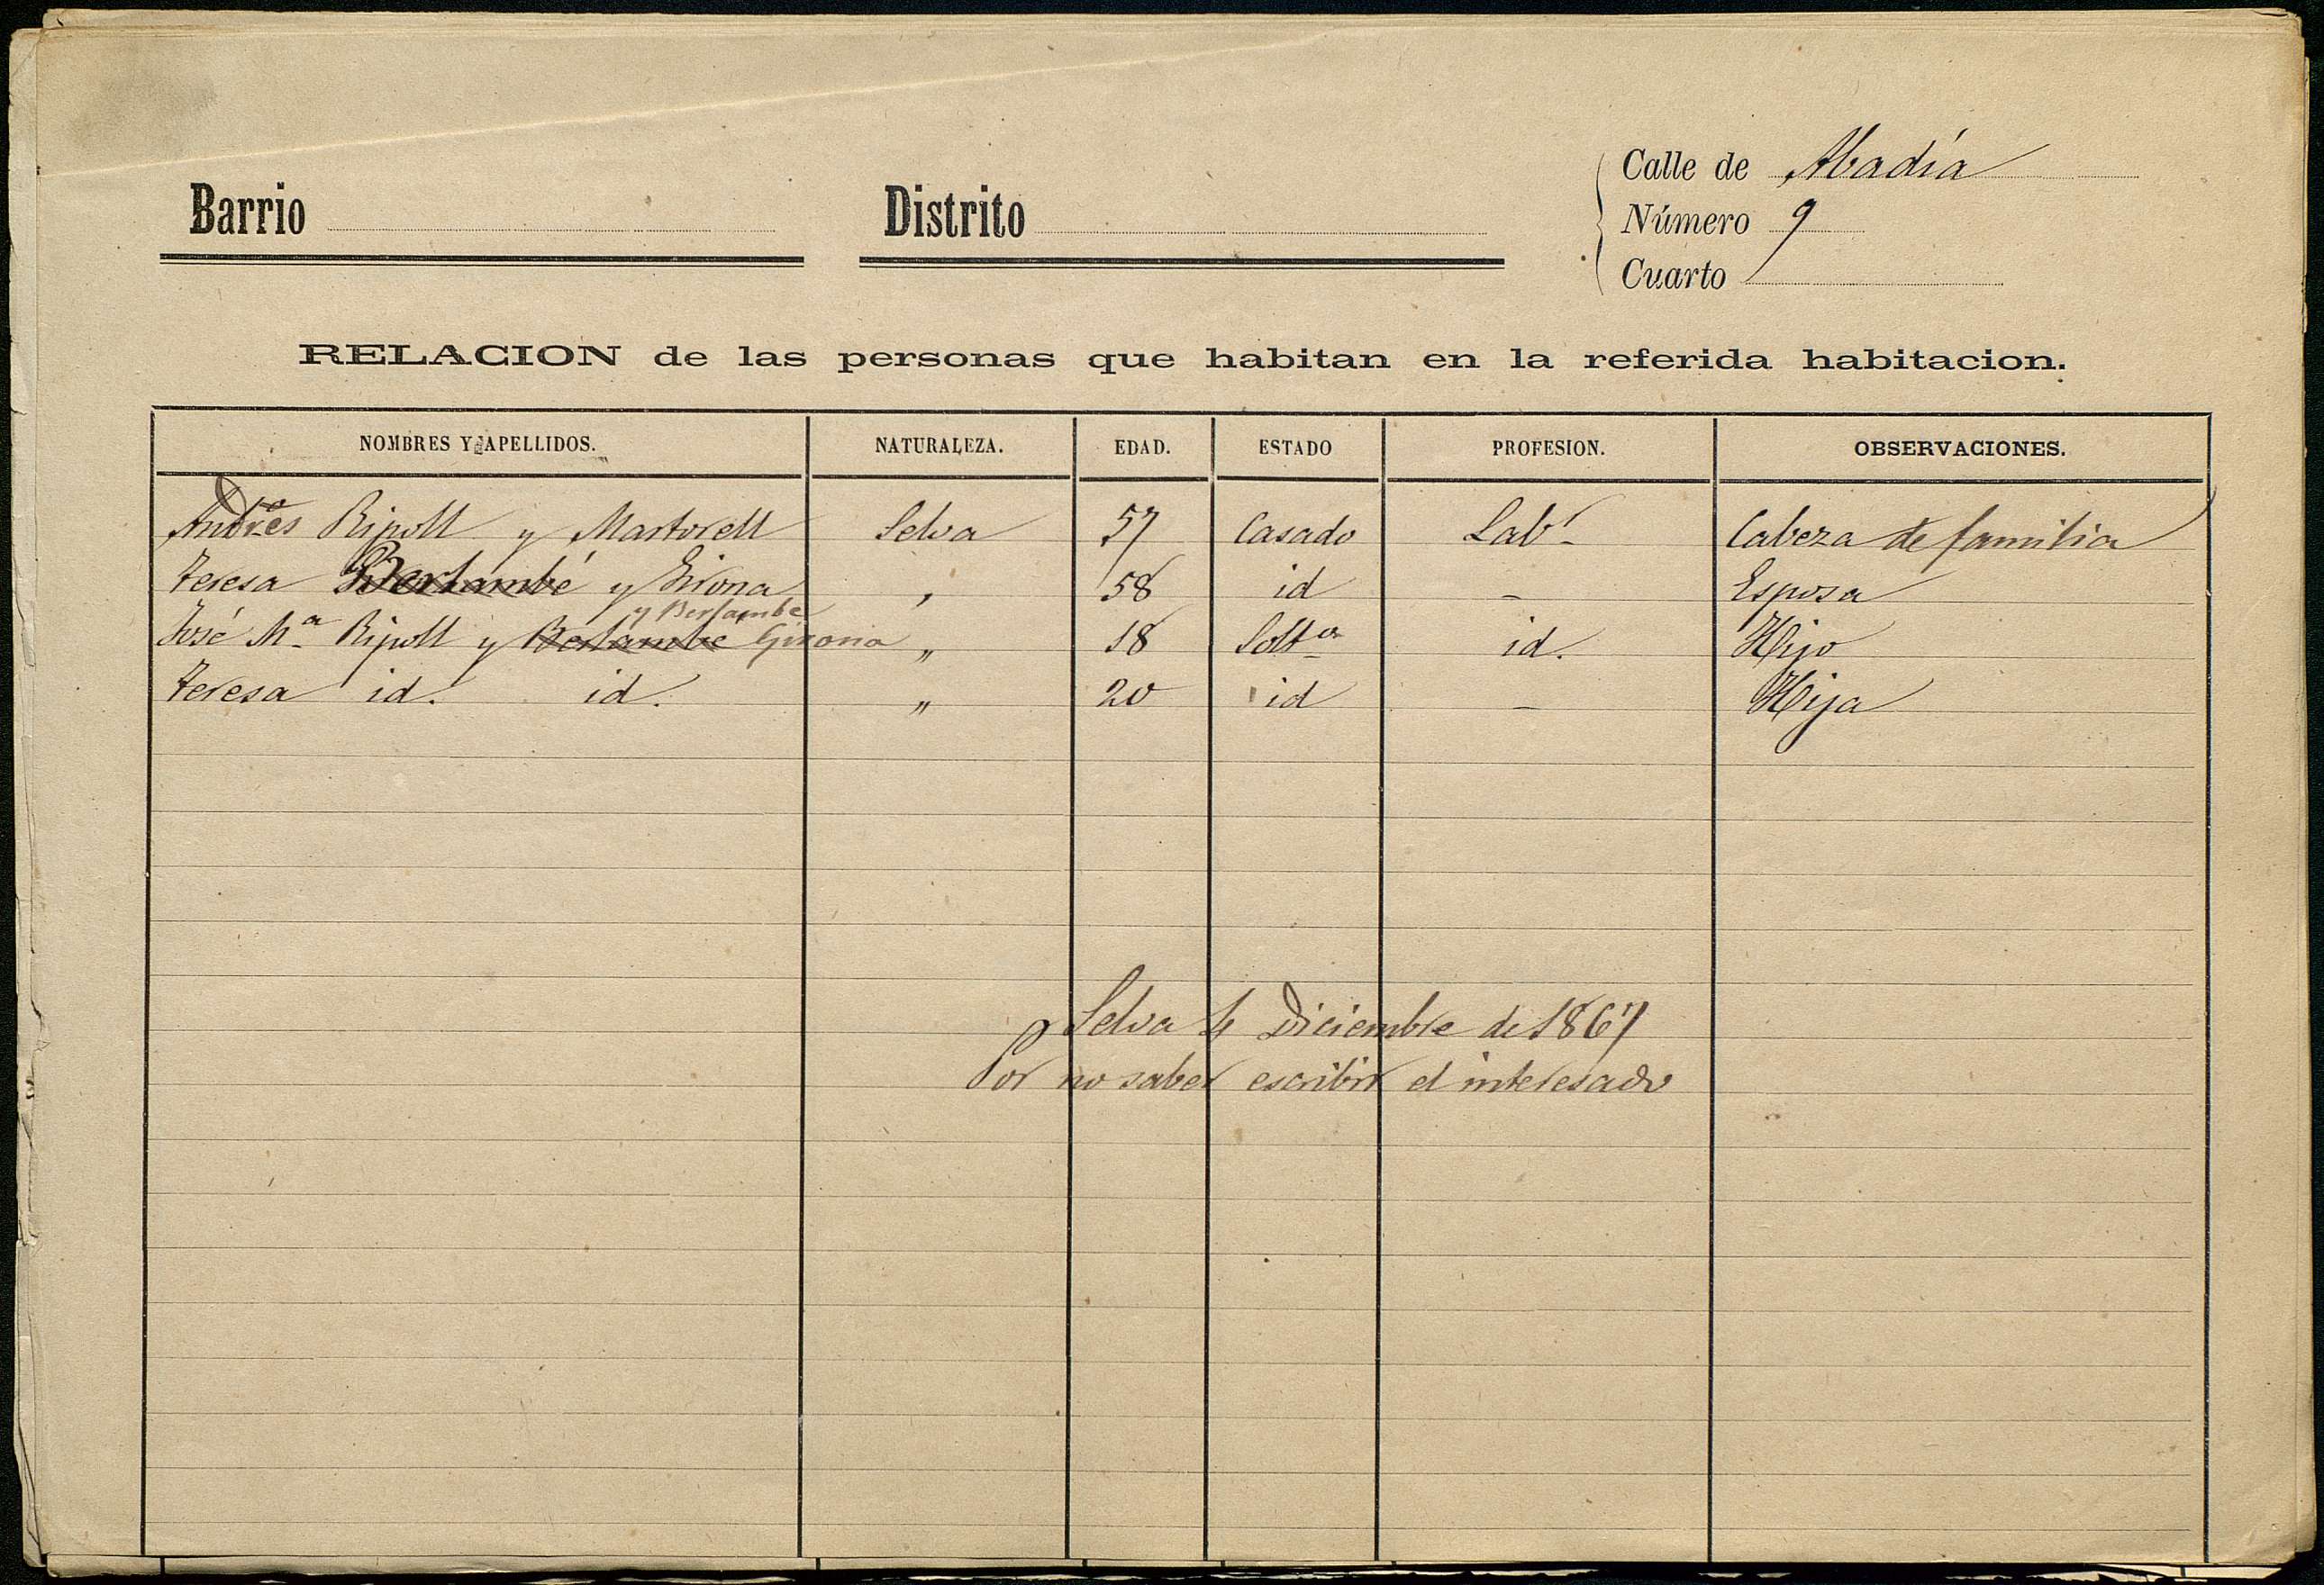 Calle de Abadía
Barrio Distrito Número 9
Cuarto
RELACION de las personas que habitan en la referida habitacion.
NOMBRES Y APELLIDOS. NATURALEZA. EDAD. ESTADO PROFESION. OBSERVACIONES.
Andres Ripoll y Martorell Selva 57 Casado Labr Cabeza de familia
Teresa Bertambé y Girona , 58 id – Esposa
y Bertambe
José Ma Ripoll y Bertambe Girona „ 18 Solto id. Hijo
Teresa id. id. „ 20 id – Hija
Selva 4 Diciembre de 1867
Por no saber escribir el interesado